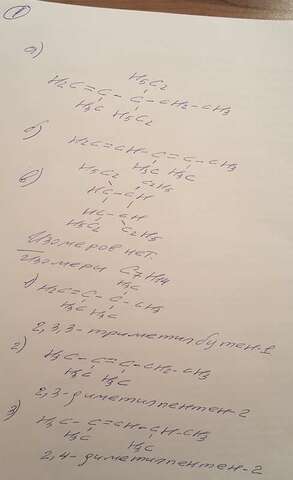 1
а)
H5C2
H2C=C-C-CH2-CH3
H3C H5C2
б)
H2C=CH-C=C-CH3
H3C H3C
в)
H5C2 C2H5
HC-CH
HC-CH
H5C2 C2H5
Изомеров нет.
Изомеры C7H14
H3C
1) H2C=C-C-CH3
H3C H3C
2,3,3-триметилбутен-1
2) H3C-C=C-CH2-CH3
H3C H3C
2,3-диметилпентен-2
3) H3C-C=CH-CH-CH3
H3C H3C
2,4-диметилпентен-2